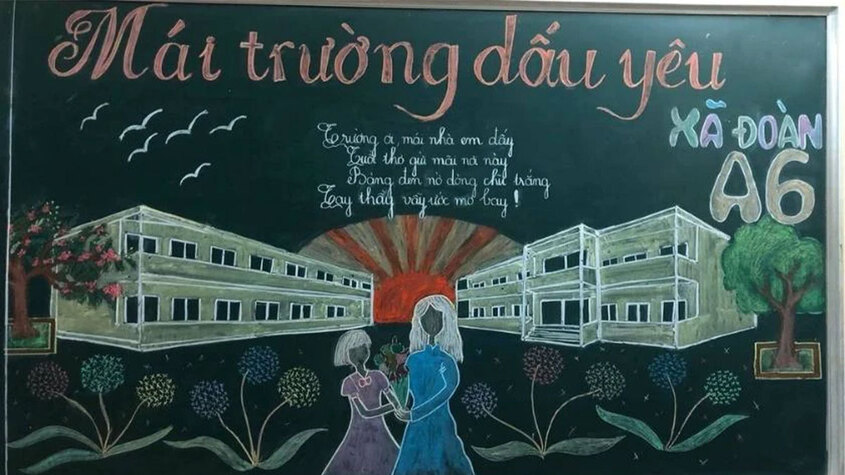 Mái trường dấu yêu
XÃ ĐOÀN
A6
Trường ơi, mái nhà em đấy
Tuổi thơ giữ mãi nơi này
Bảng đen nở dòng chữ trắng
Tay thầy vẫy ước mơ bay!